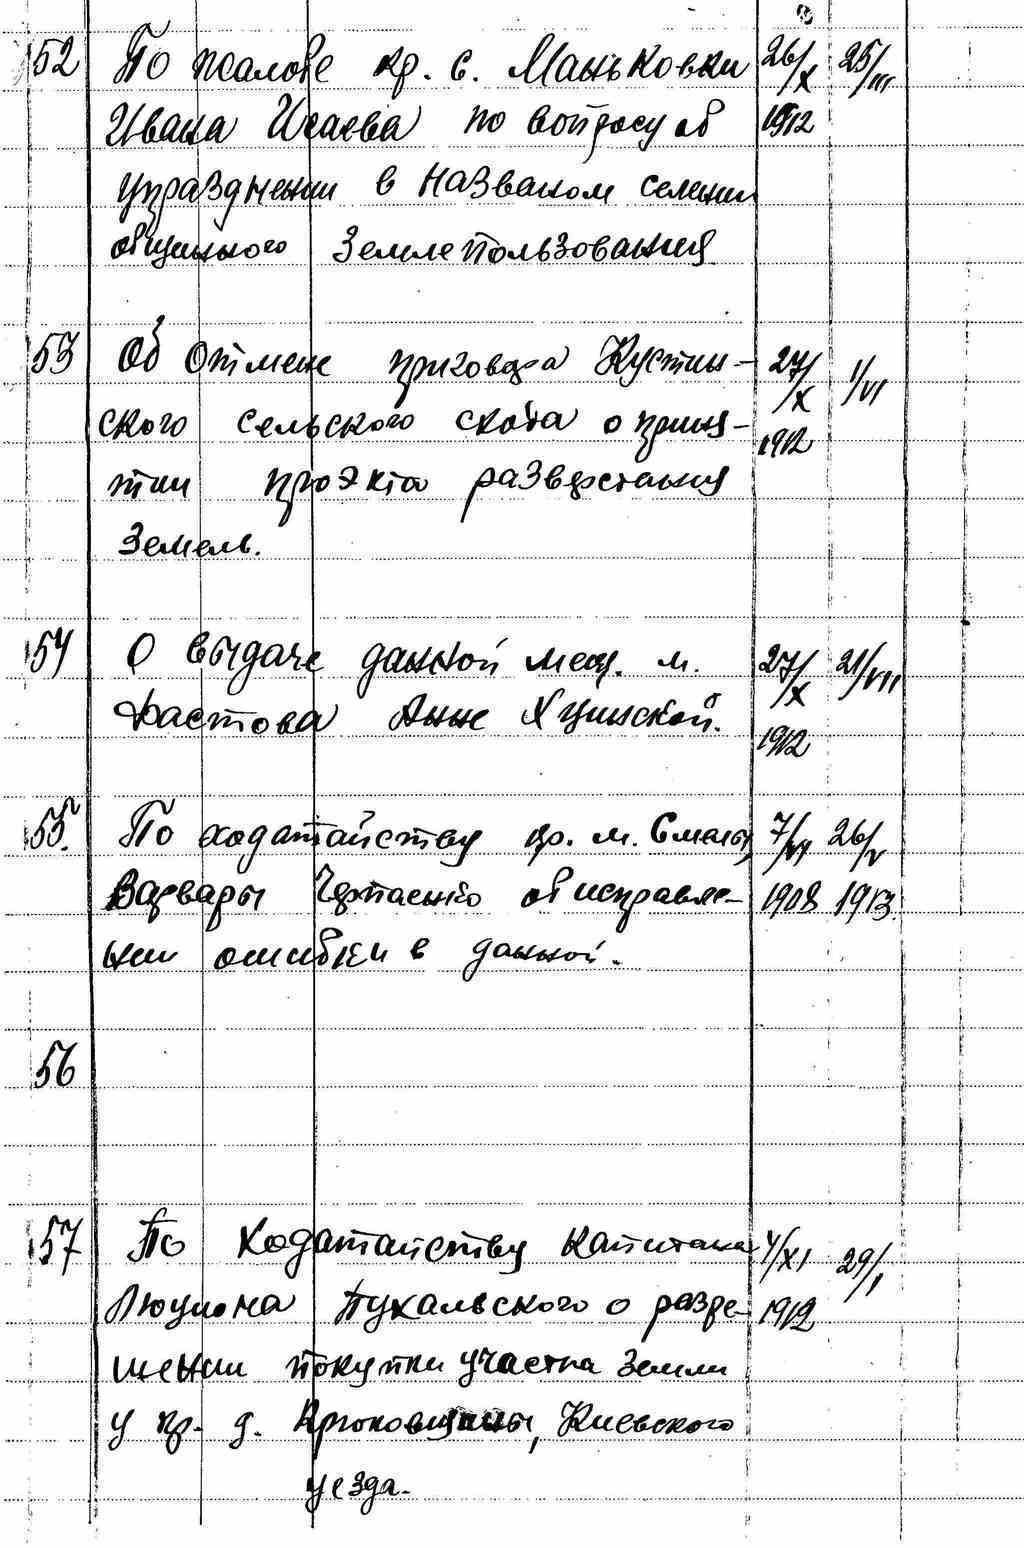 52 По жалобе кр. с. Маньковки 26/X 25/III
Ивана Исаева по вопросу об 1912
упразднении в названом селении
общинного землепользования
53 Об отмене приговора Кустин- 27/X 1/VI
ского сельского схода о приня- 1912
тии проэкта разверстания
земель.
54 О выдаче данной мещ. м. 27/X 21/VII
Фастова Анне Хуцинской. 1912
55. По ходатайству кр. м. Смелы, 7/VII 26/V
Варвары об исправле- 1908 1913
нии ошибки в данной.
56
57 По ходатайству капитана 4/XI 29/I
Люциана Пухальского о разре- 1912
шении покупки участка земли
у кр. д. Крюковщины, Киевского
уезда.